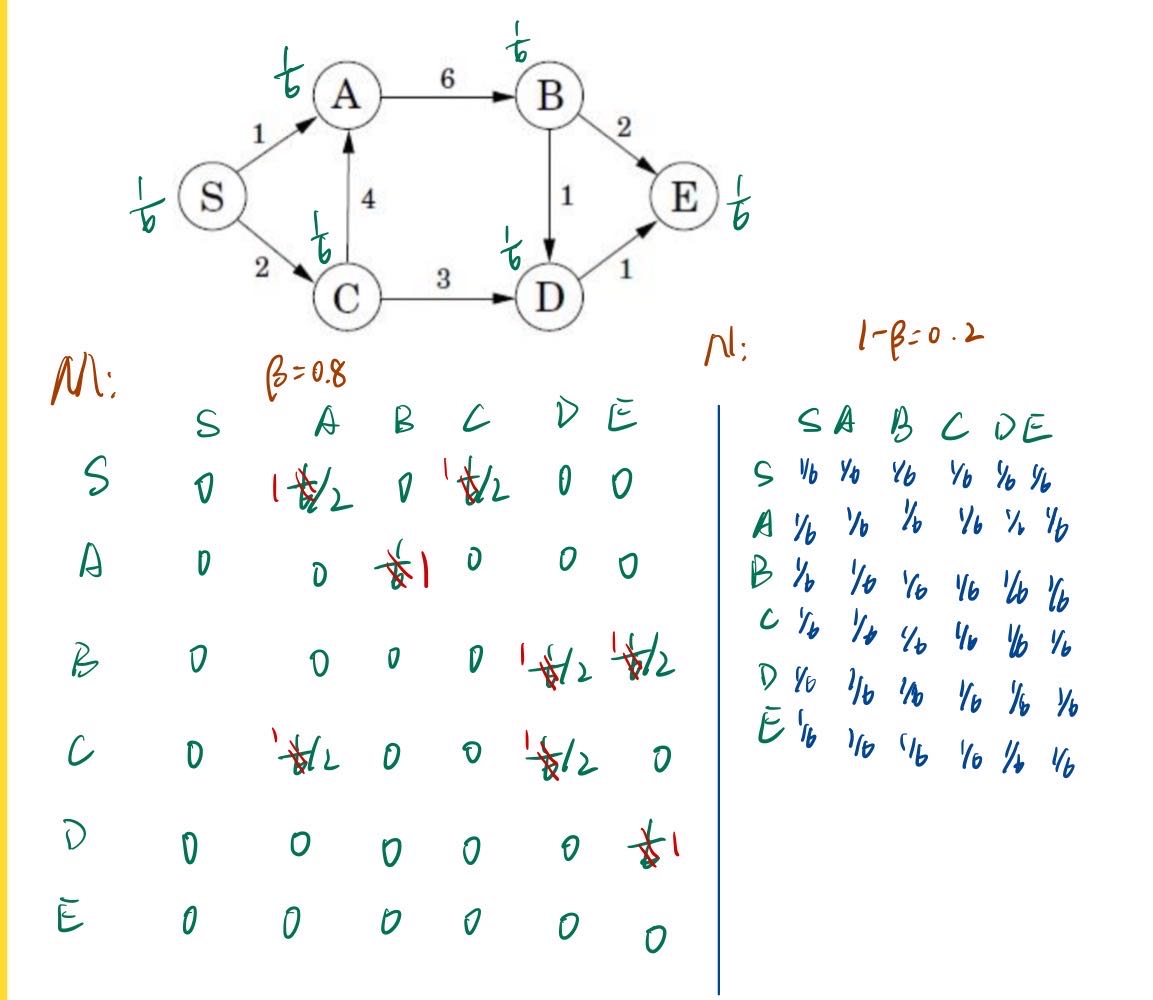 1/6
1/6
A
6
B
1
2
1/6
S
4
1
E
1/6
1/6
1/6
2
C
3
D
1
M: β=0.8
N: 1-β=0.2
S A B C D E
S 0 1/2 0 1/2 0 0
A 0 0 1 0 0 0
B 0 0 0 0 1/2 1/2
C 0 1/2 0 0 1/2 0
D 0 0 0 0 0 1
E 0 0 0 0 0 0
S A B C D E
S 1/6 1/6 1/6 1/6 1/6 1/6
A 1/6 1/6 1/6 1/6 1/6 1/6
B 1/6 1/6 1/6 1/6 1/6 1/6
C 1/6 1/6 1/6 1/6 1/6 1/6
D 1/6 1/6 1/6 1/6 1/6 1/6
E 1/6 1/6 1/6 1/6 1/6 1/6